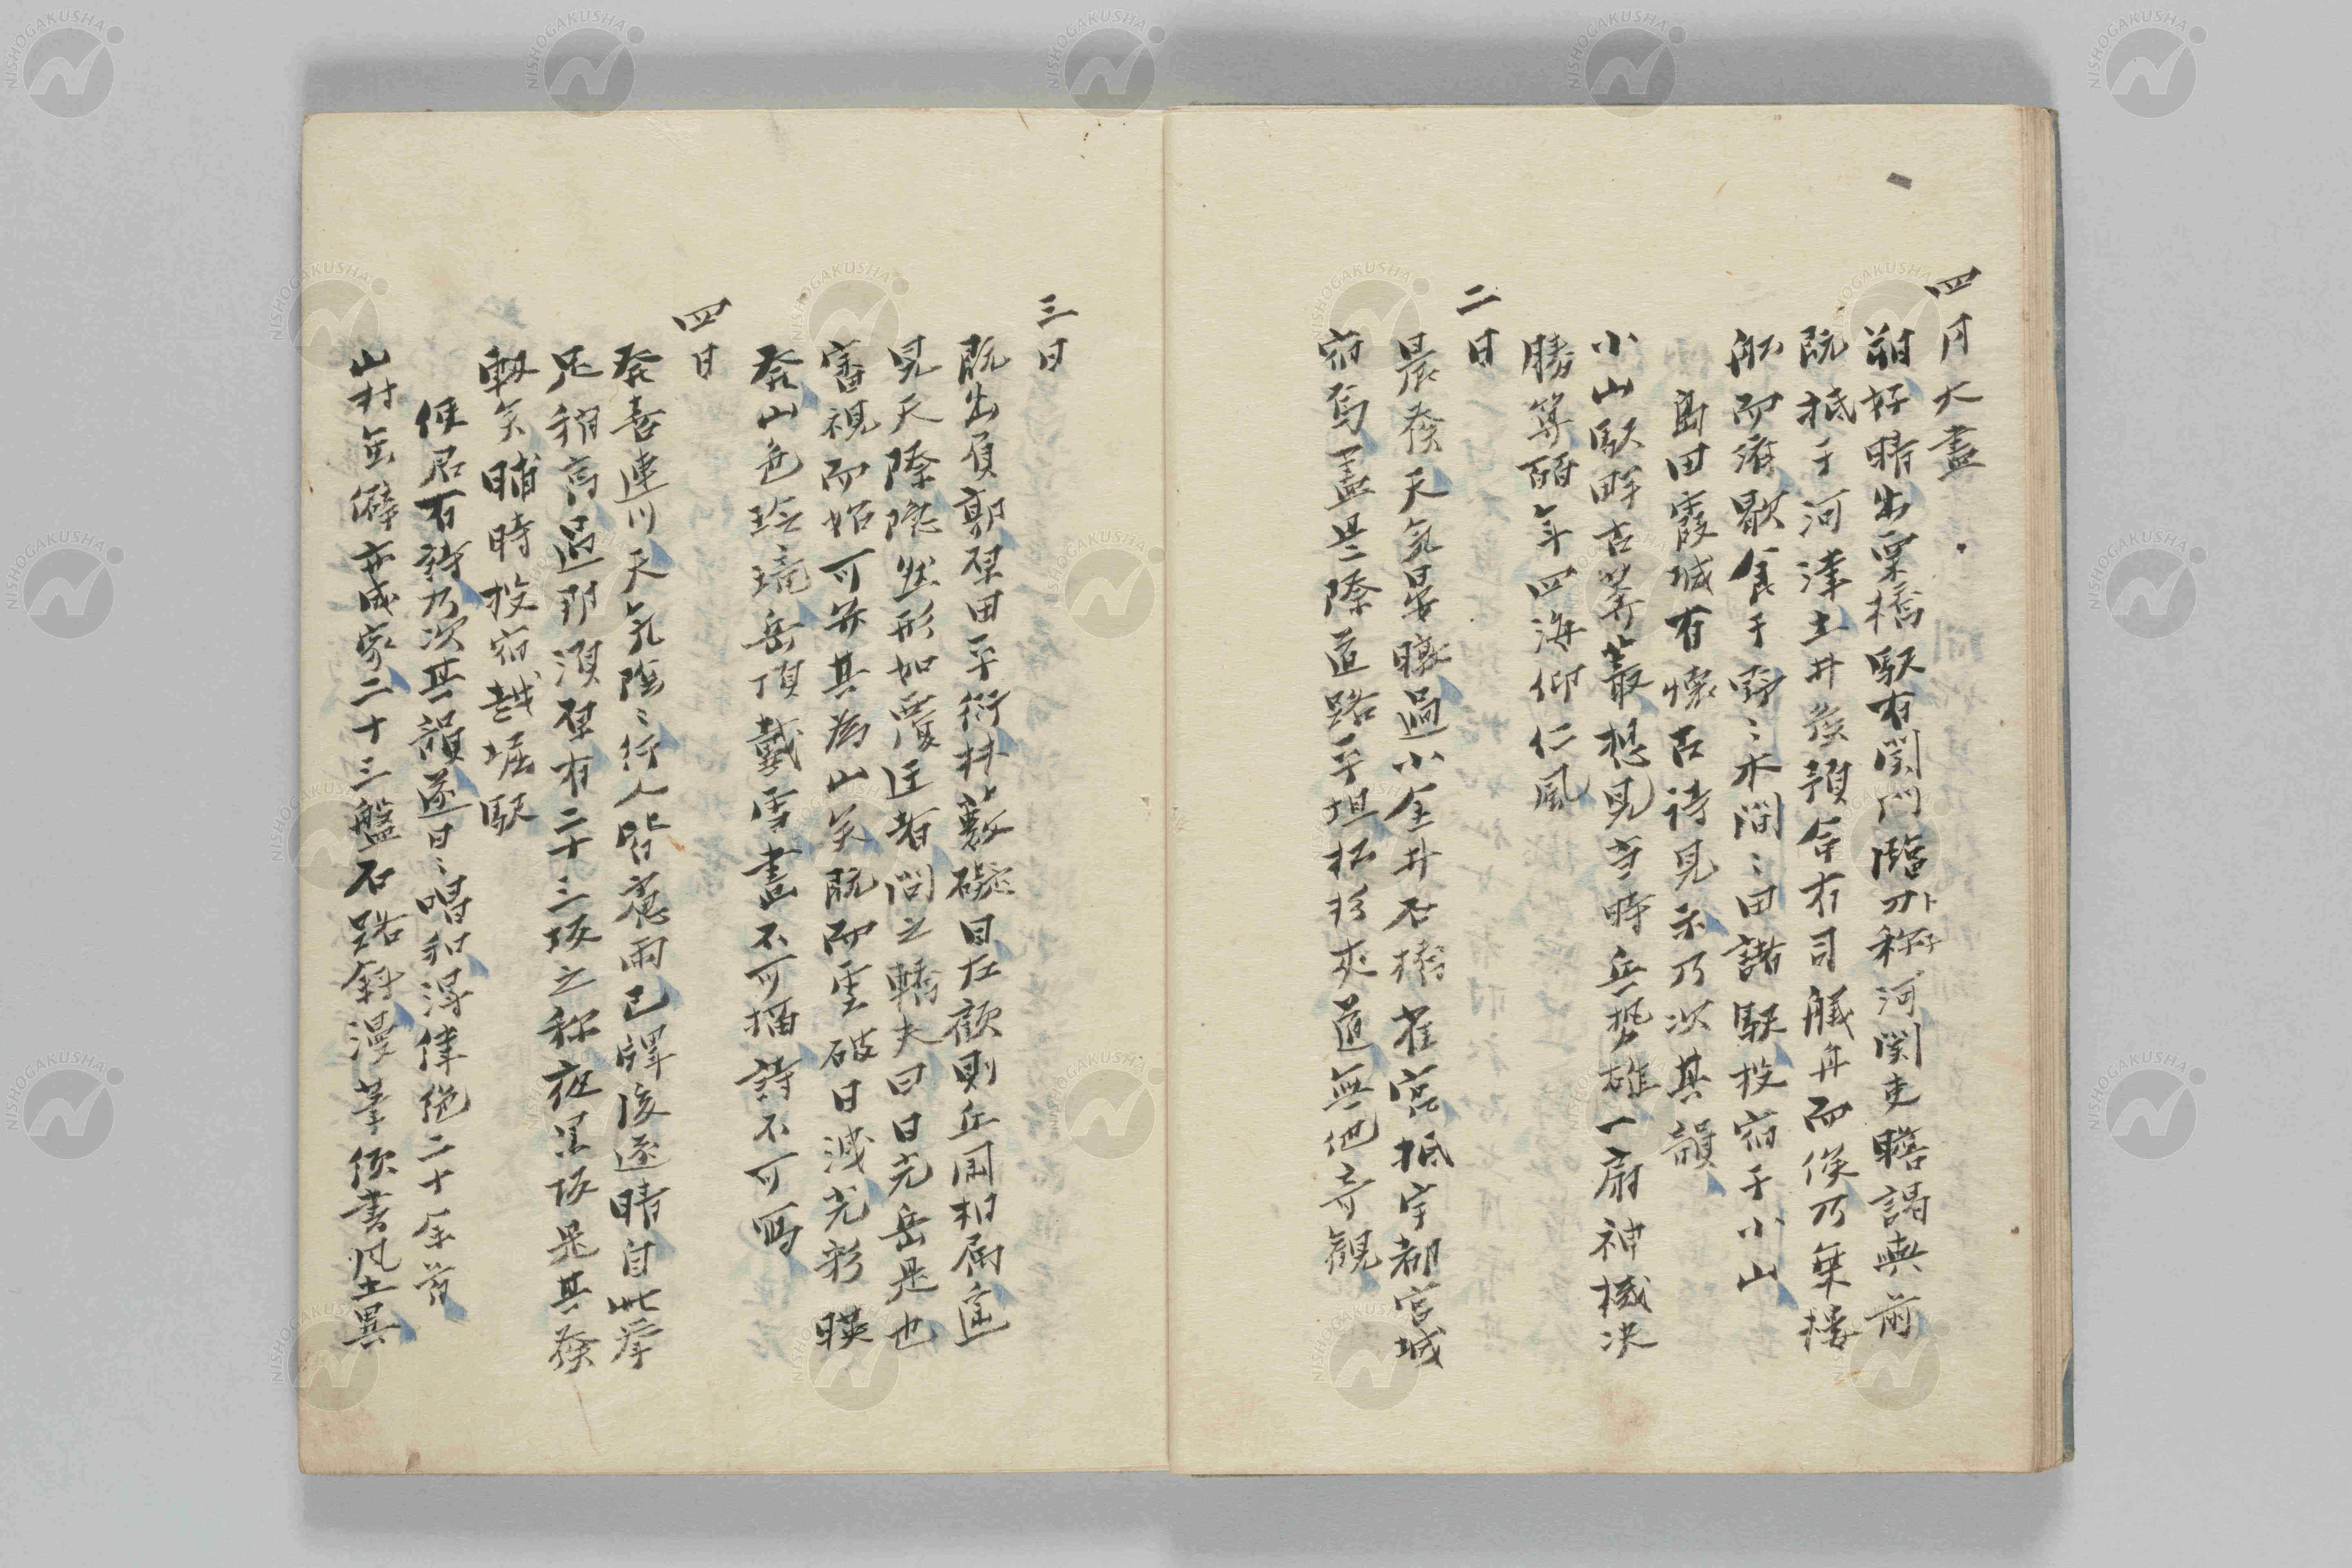 四月大盡
朔好晴出栗橋駅有関門臨刀称河関吏瞻謁輿前
既抵于河津土井矦預命有司艤舟而俟乃乗樓
船而済歇食于野〻木間〻田諸駅投宿于小山
島田霞城有懐古詩見示乃次其韻
小山駅畔古叢想見当時兵勢雄一府神機决
勝算酬年四海仰仁風
二日
晨發天気晏曖過小金井石橋雀宮抵宇都宮城
宿焉盖是際道路平坦松杉夾道無他奇観
三日
既出負郭犁田平衍林藪礙目左顧則丘岡相属遥
見天際隠然形如覆者問之轎夫曰日光岳是也
審視而始可弁其為山矣既而雲破日洩光彩映
發山色玲瓏岳頂戴雪畫不可描詩不可寫
四日
發喜連川天気陰〻行人皆憲雨已牌後遂晴自此挙
足稍高過那須犁有二十三坂之称夜黒坂是其發
軔矣晡時投宿越堀駅
使君有詩乃次其韻遂日〻唱和得律絶二十余首
山村無僻亦成家二十三盤石路斜漫筆係書風土異
NISHOGAKUSHA